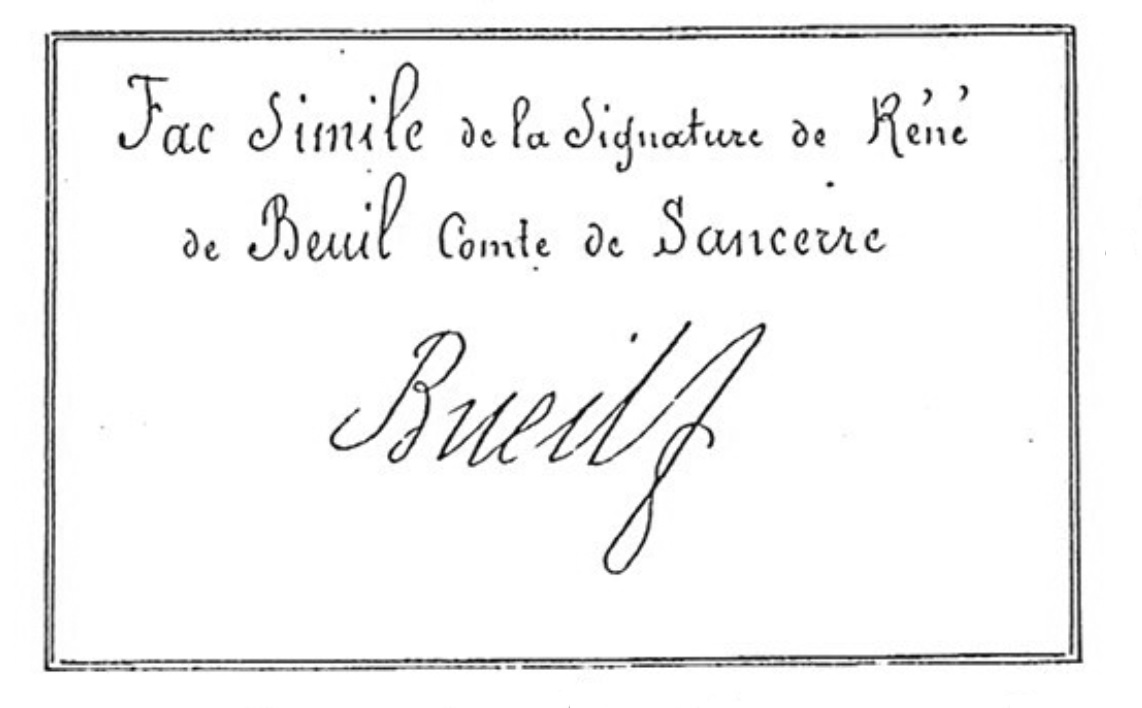 Fac Simile de la Signature de Réné
de Beuil Comte de Sancerre
Bueil